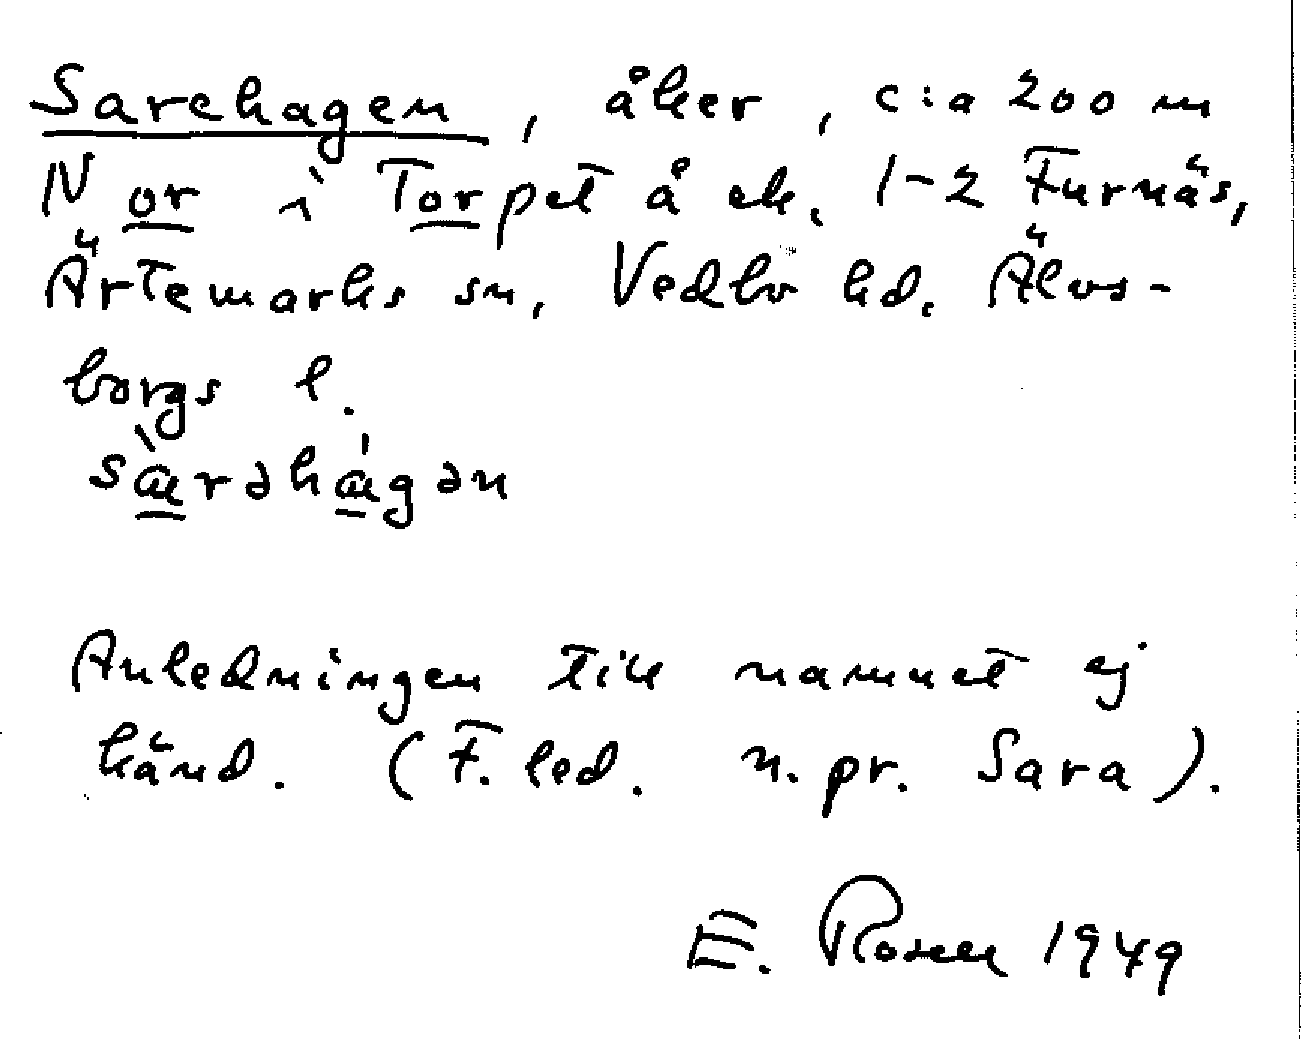 Sarehagen, åker, c:a 200 m
N or i Torpet å ek. 1-2 Furnäs,
Ärtemarks sn, Vedbo hd. Älvs-
borgs l.
sæ̀rəhágən
Anledningen till namnet ej
känd. (F. led. n. pr. Sara).
E. Rosell 1949